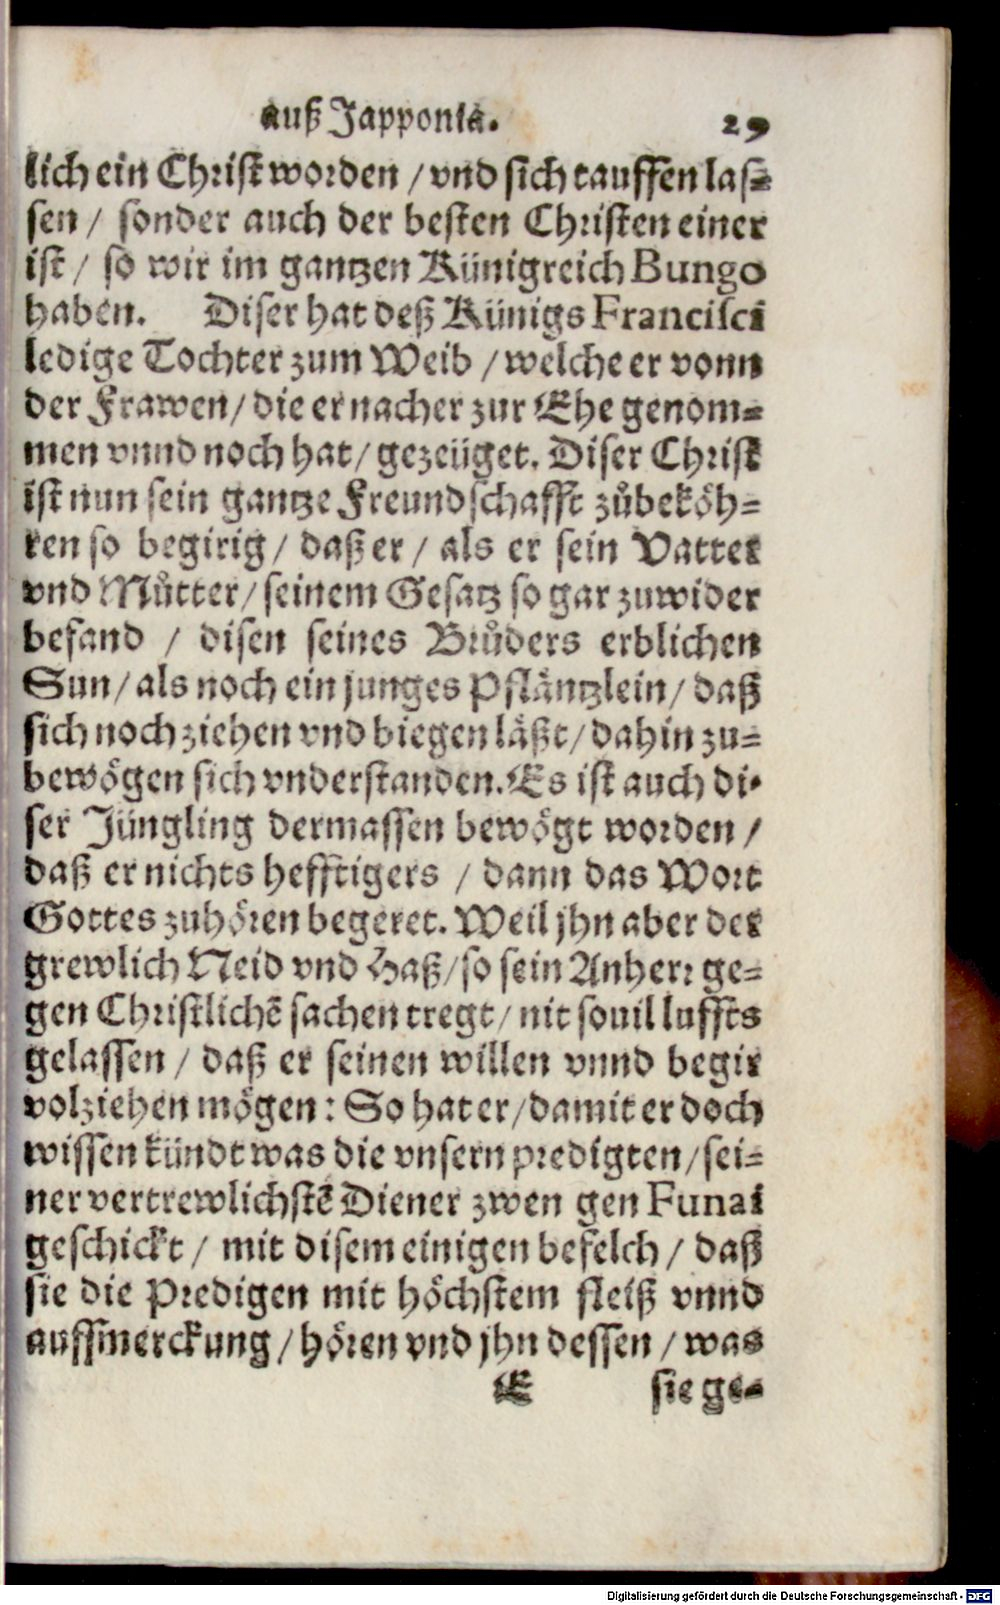 auß Japponia. 29
lich ein Christ worden / vnd sich tauffen las-
sen / sonder auch der besten Christen einer
ist / so wir im gantzen Künigreich Bungo
haben. Diser hat deß Künigs Francisci
ledige Tochter zum Weib / welche er vonn
der Frawen / die er nacher zur Ehe genom-
men vnnd noch hat / gezeüget. Diser Christ
ist nun sein gantze Freundschafft zůbeköh-
ren so begirig / daß er / als er sein Vatter
vnd Můtter / seinem Gesatz so gar zuwider
befand / disen seines Brůders erblichen
Sun / als noch ein junges Pfläntzlein / daß
sich noch ziehen vnd biegen läßt / dahin zu-
bewögen sich vnderstanden. Es ist auch di-
ser Jüngling dermassen bewögt worden /
daß er nichts hefftigers / dann das Wort
Gottes zuhören begeret. Weil jhn aber der
grewlich Neid vnd Haß / so sein Anherr ge-
gen Christlichẽ sachen tregt / nit souil luffts
gelassen / daß er seinen willen vnnd begir
volziehen mögen : So hat er / damit er doch
wissen kündt was die vnsern predigten / sei-
ner vertrewlichstẽ Diener zwen gen Funai
geschickt / mit disem einigen befelch / daß
sie die Predigen mit höchstem fleiß vnnd
auffmerckung / hören vnd jhn dessen / was
E sie ge-
Digitalisierung gefördert durch die Deutsche Forschungsgemeinschaft - DFG